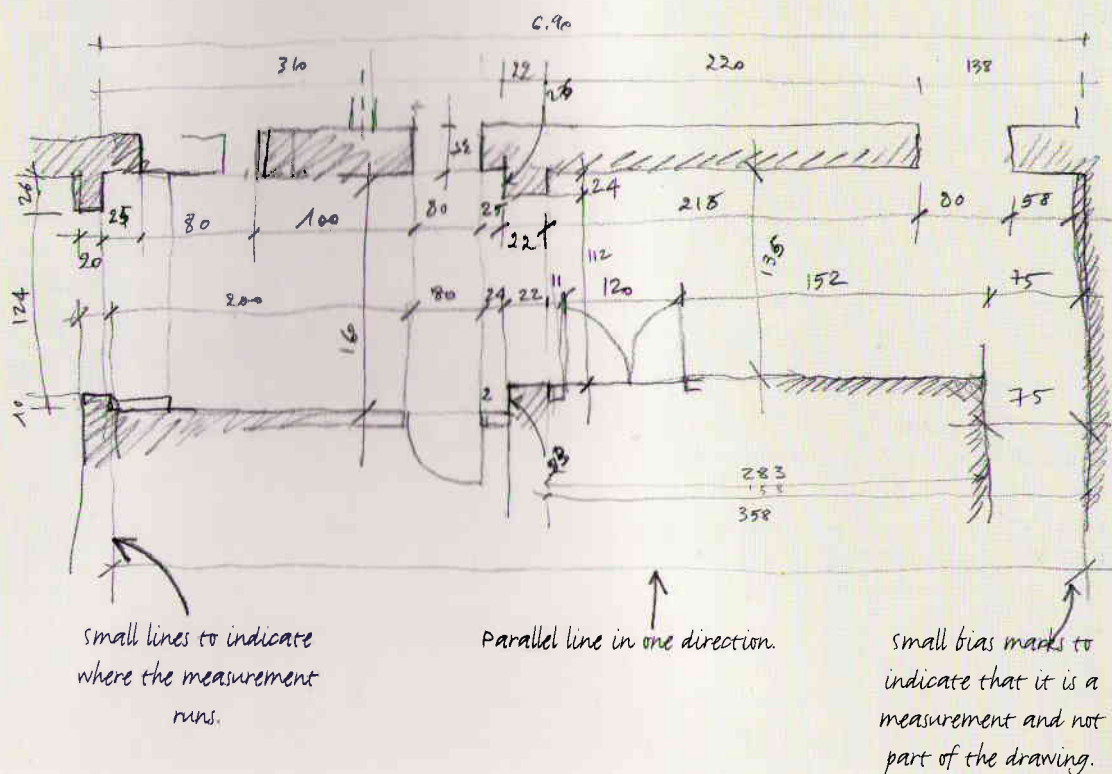 6.90
310
22
220
138
24
26
25
80
100
80
25
22
215
80
58
20
112
135
124
200
80
24
22
11
120
152
75
16
10
2
75
283
158
358
Small lines to indicate
where the measurement
runs.
Parallel line in one direction.
Small bias marks to
indicate that it is a
measurement and not
part of the drawing.